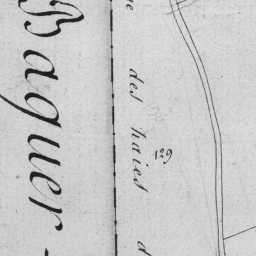 Baguer-
des haies
129